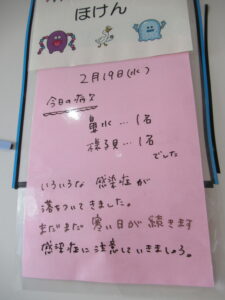 ほけん
2月19日(水)
今日の病欠
鼻水…1名
様子見…1名
でした
いろいろな感染症が
落ちついてきました。
まだまだ寒い日が続きます
感染症に注意していきましょう。